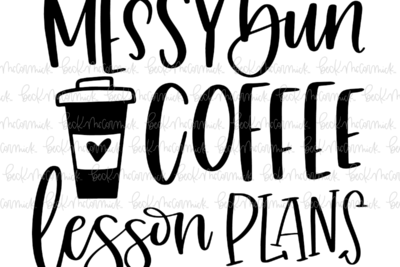 MESSY bun
COFFEE
lesson PLANS